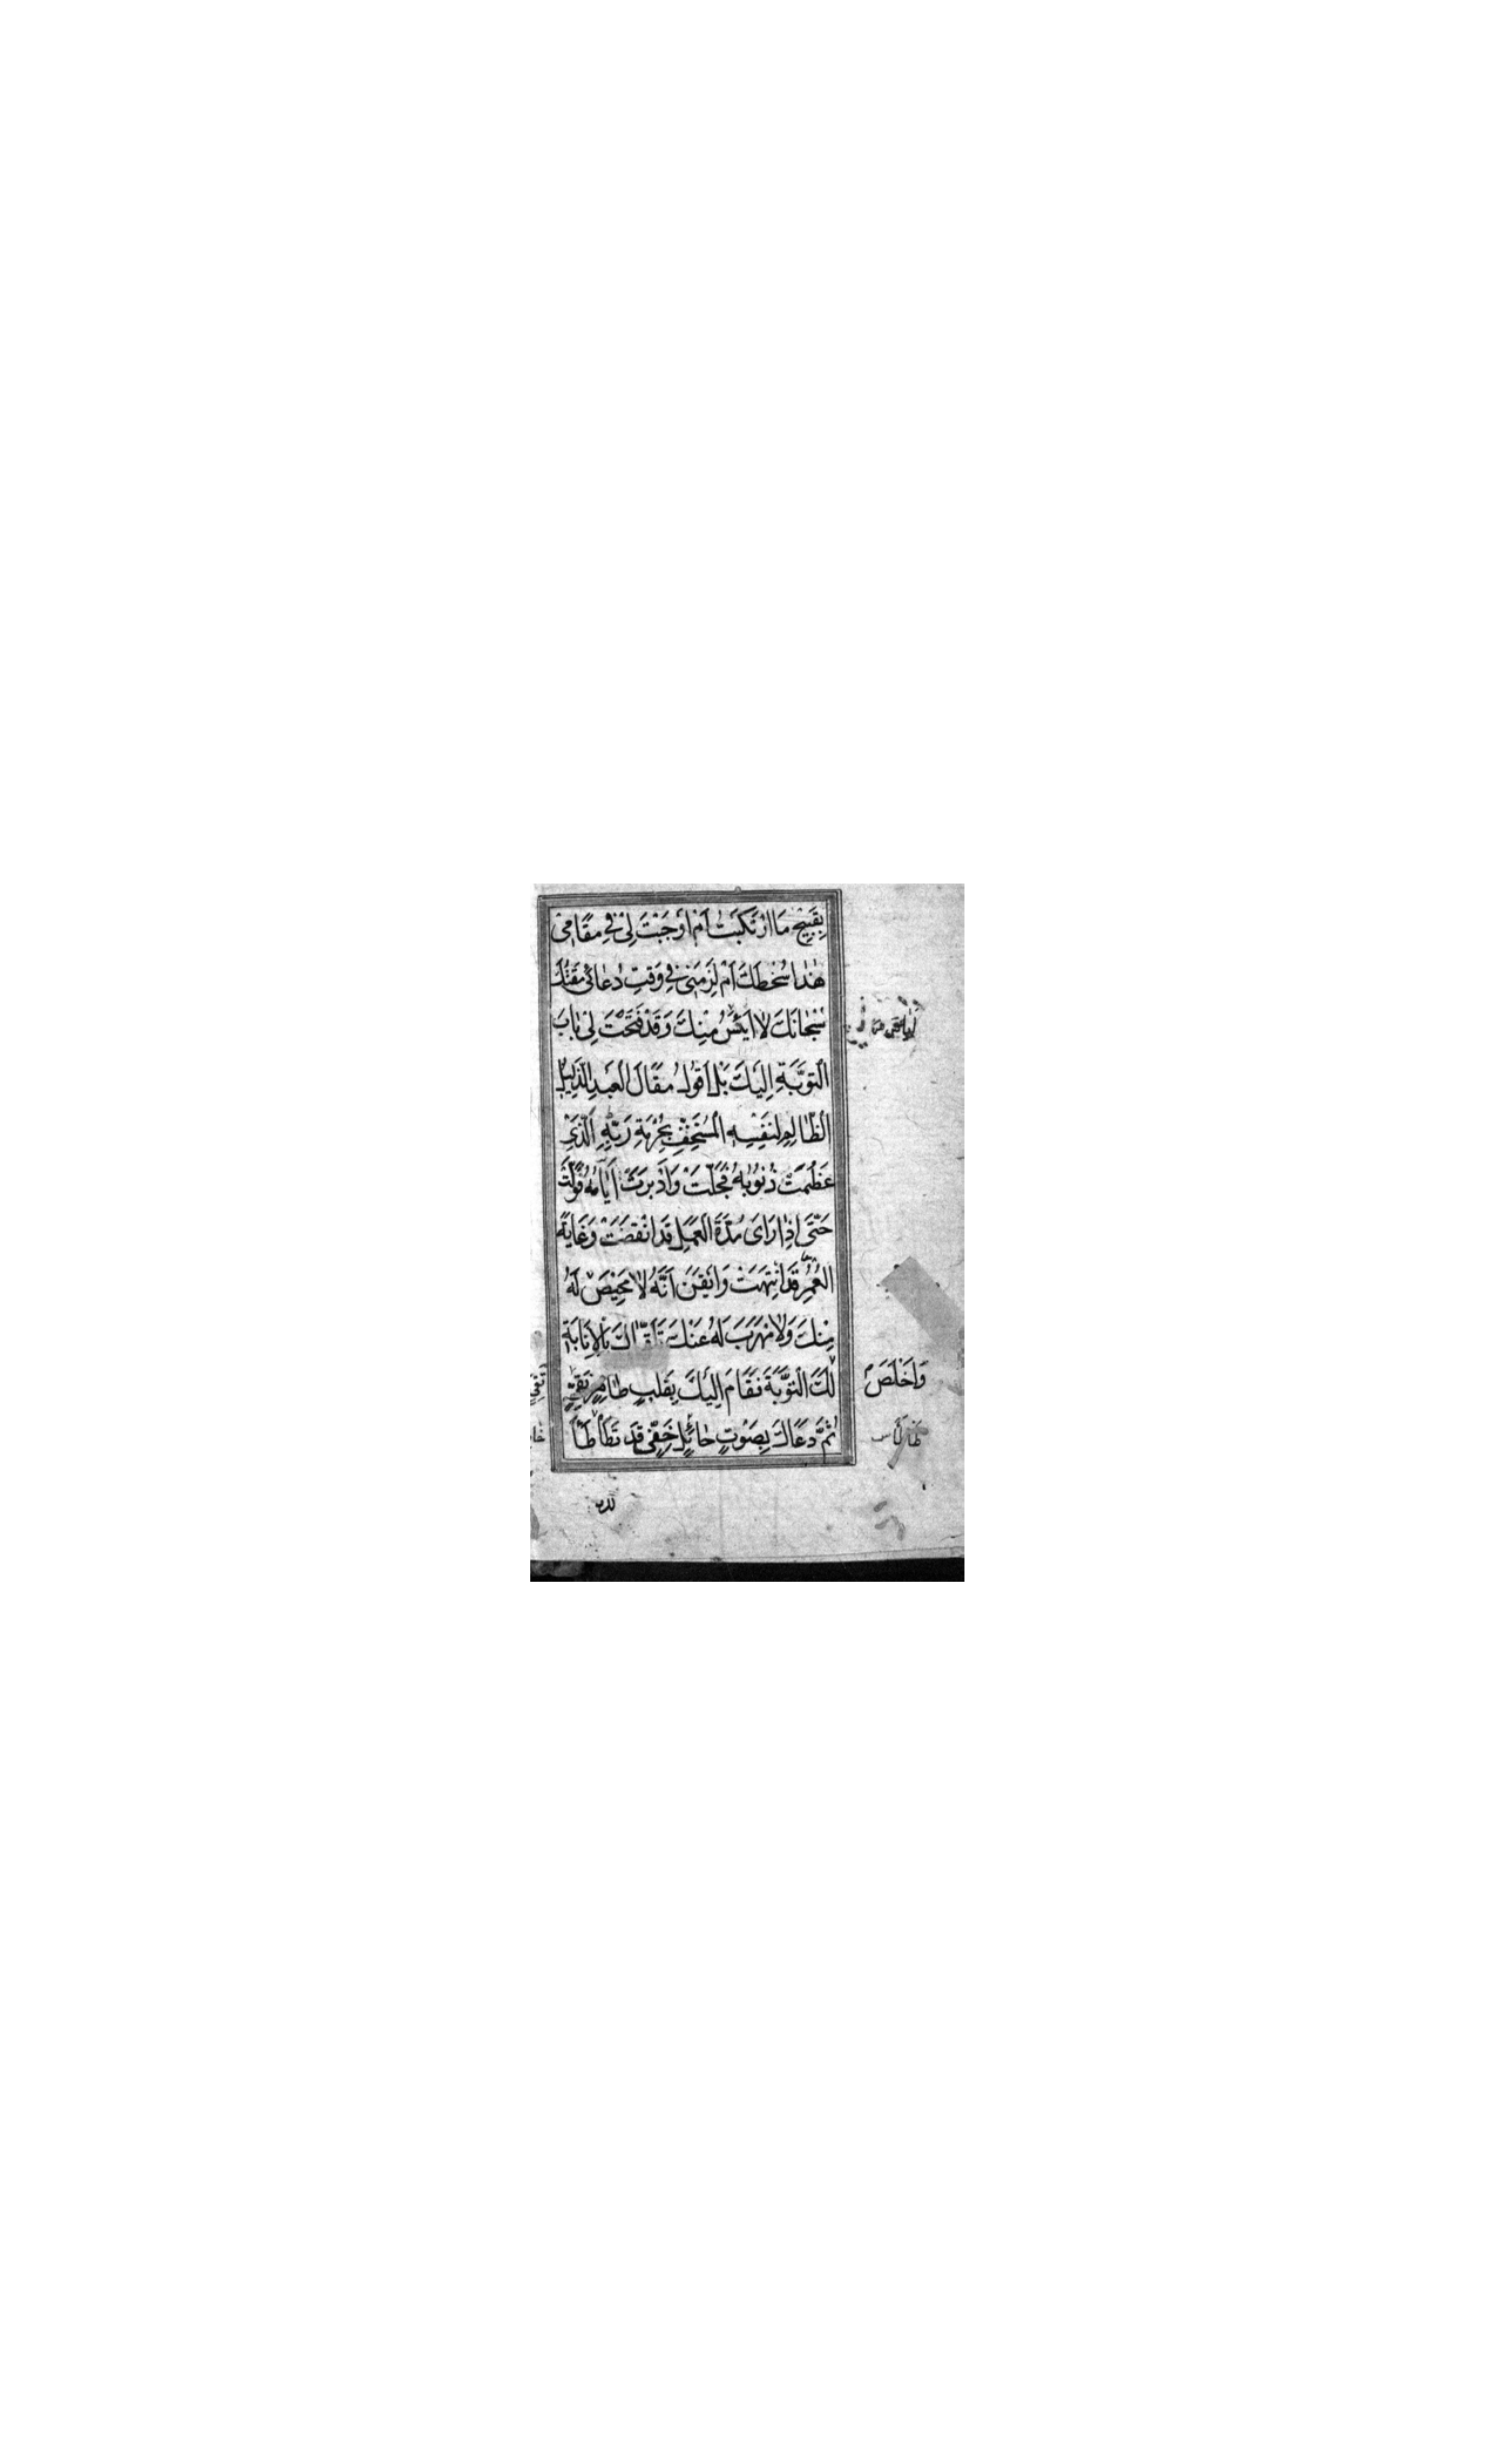 بِقَبِيحِ مَا ارْتَكَبْتُ أَمْ أَوْجَبْتَ لِي فِي مَقَامِي
هٰذَا سُخْطَكَ أَمْ لَزِمَنِي فِي وَقْتِ دُعَائِي مَقْتُكَ
سُبْحَانَكَ لَا أَيْئَسُ مِنْكَ وَقَدْ فَتَحْتَ لِي بَابَ
التَّوْبَةِ إِلَيْكَ بَلْ أَقُولُ مَقَالَ الْعَبْدِ الذَّلِيلِ
الظَّالِمِ لِنَفْسِهِ الْمُسْتَخِفِّ بِحُرْمَةِ رَبِّهِ الَّذِي
عَظُمَتْ ذُنُوبُهُ فَجَلَّتْ وَأَدْبَرَتْ أَيَّامُهُ فَوَلَّتْ
حَتَّى إِذَا رَاَى مُدَّةَ الْعَمَلِ قَدِ انْقَضَتْ وَغَايَةَ
الْعُمُرِ قَدِ انْتَهَتْ وَأَيْقَنَ أَنَّهُ لَا مَحِيصَ لَهُ
مِنْكَ وَلَا مَهْرَبَ لَهُ عَنْكَ تَلَقَّاكَ بِالْإِنَابَةِ
وَأَخْلَصَ
لَكَ التَّوْبَةَ فَقَامَ إِلَيْكَ بِقَلْبٍ طَاهِرٍ نَقِيٍّ
ثُمَّ دَعَاكَ بِصَوْتٍ حَائِلٍ خَفِيٍّ قَدْ تَطَأْطَأَ